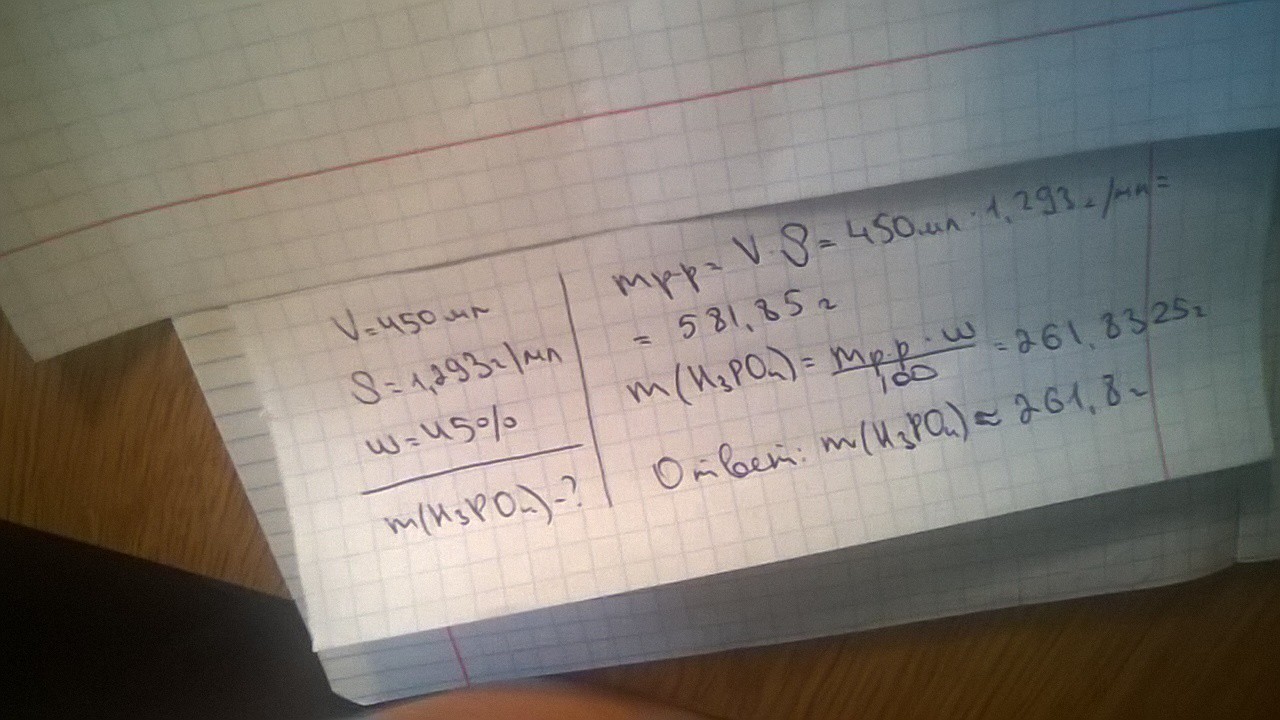 V=450 мл
ρ=1,293г/мл
w=45%
m(H₃PO₄)-?
mр-р= V·ρ=450мл·1,293г/мл=
= 581,85г
m(H₃PO₄)= mр-р·w/100 =261,8325г
Ответ: m(H₃PO₄)≈261,8г